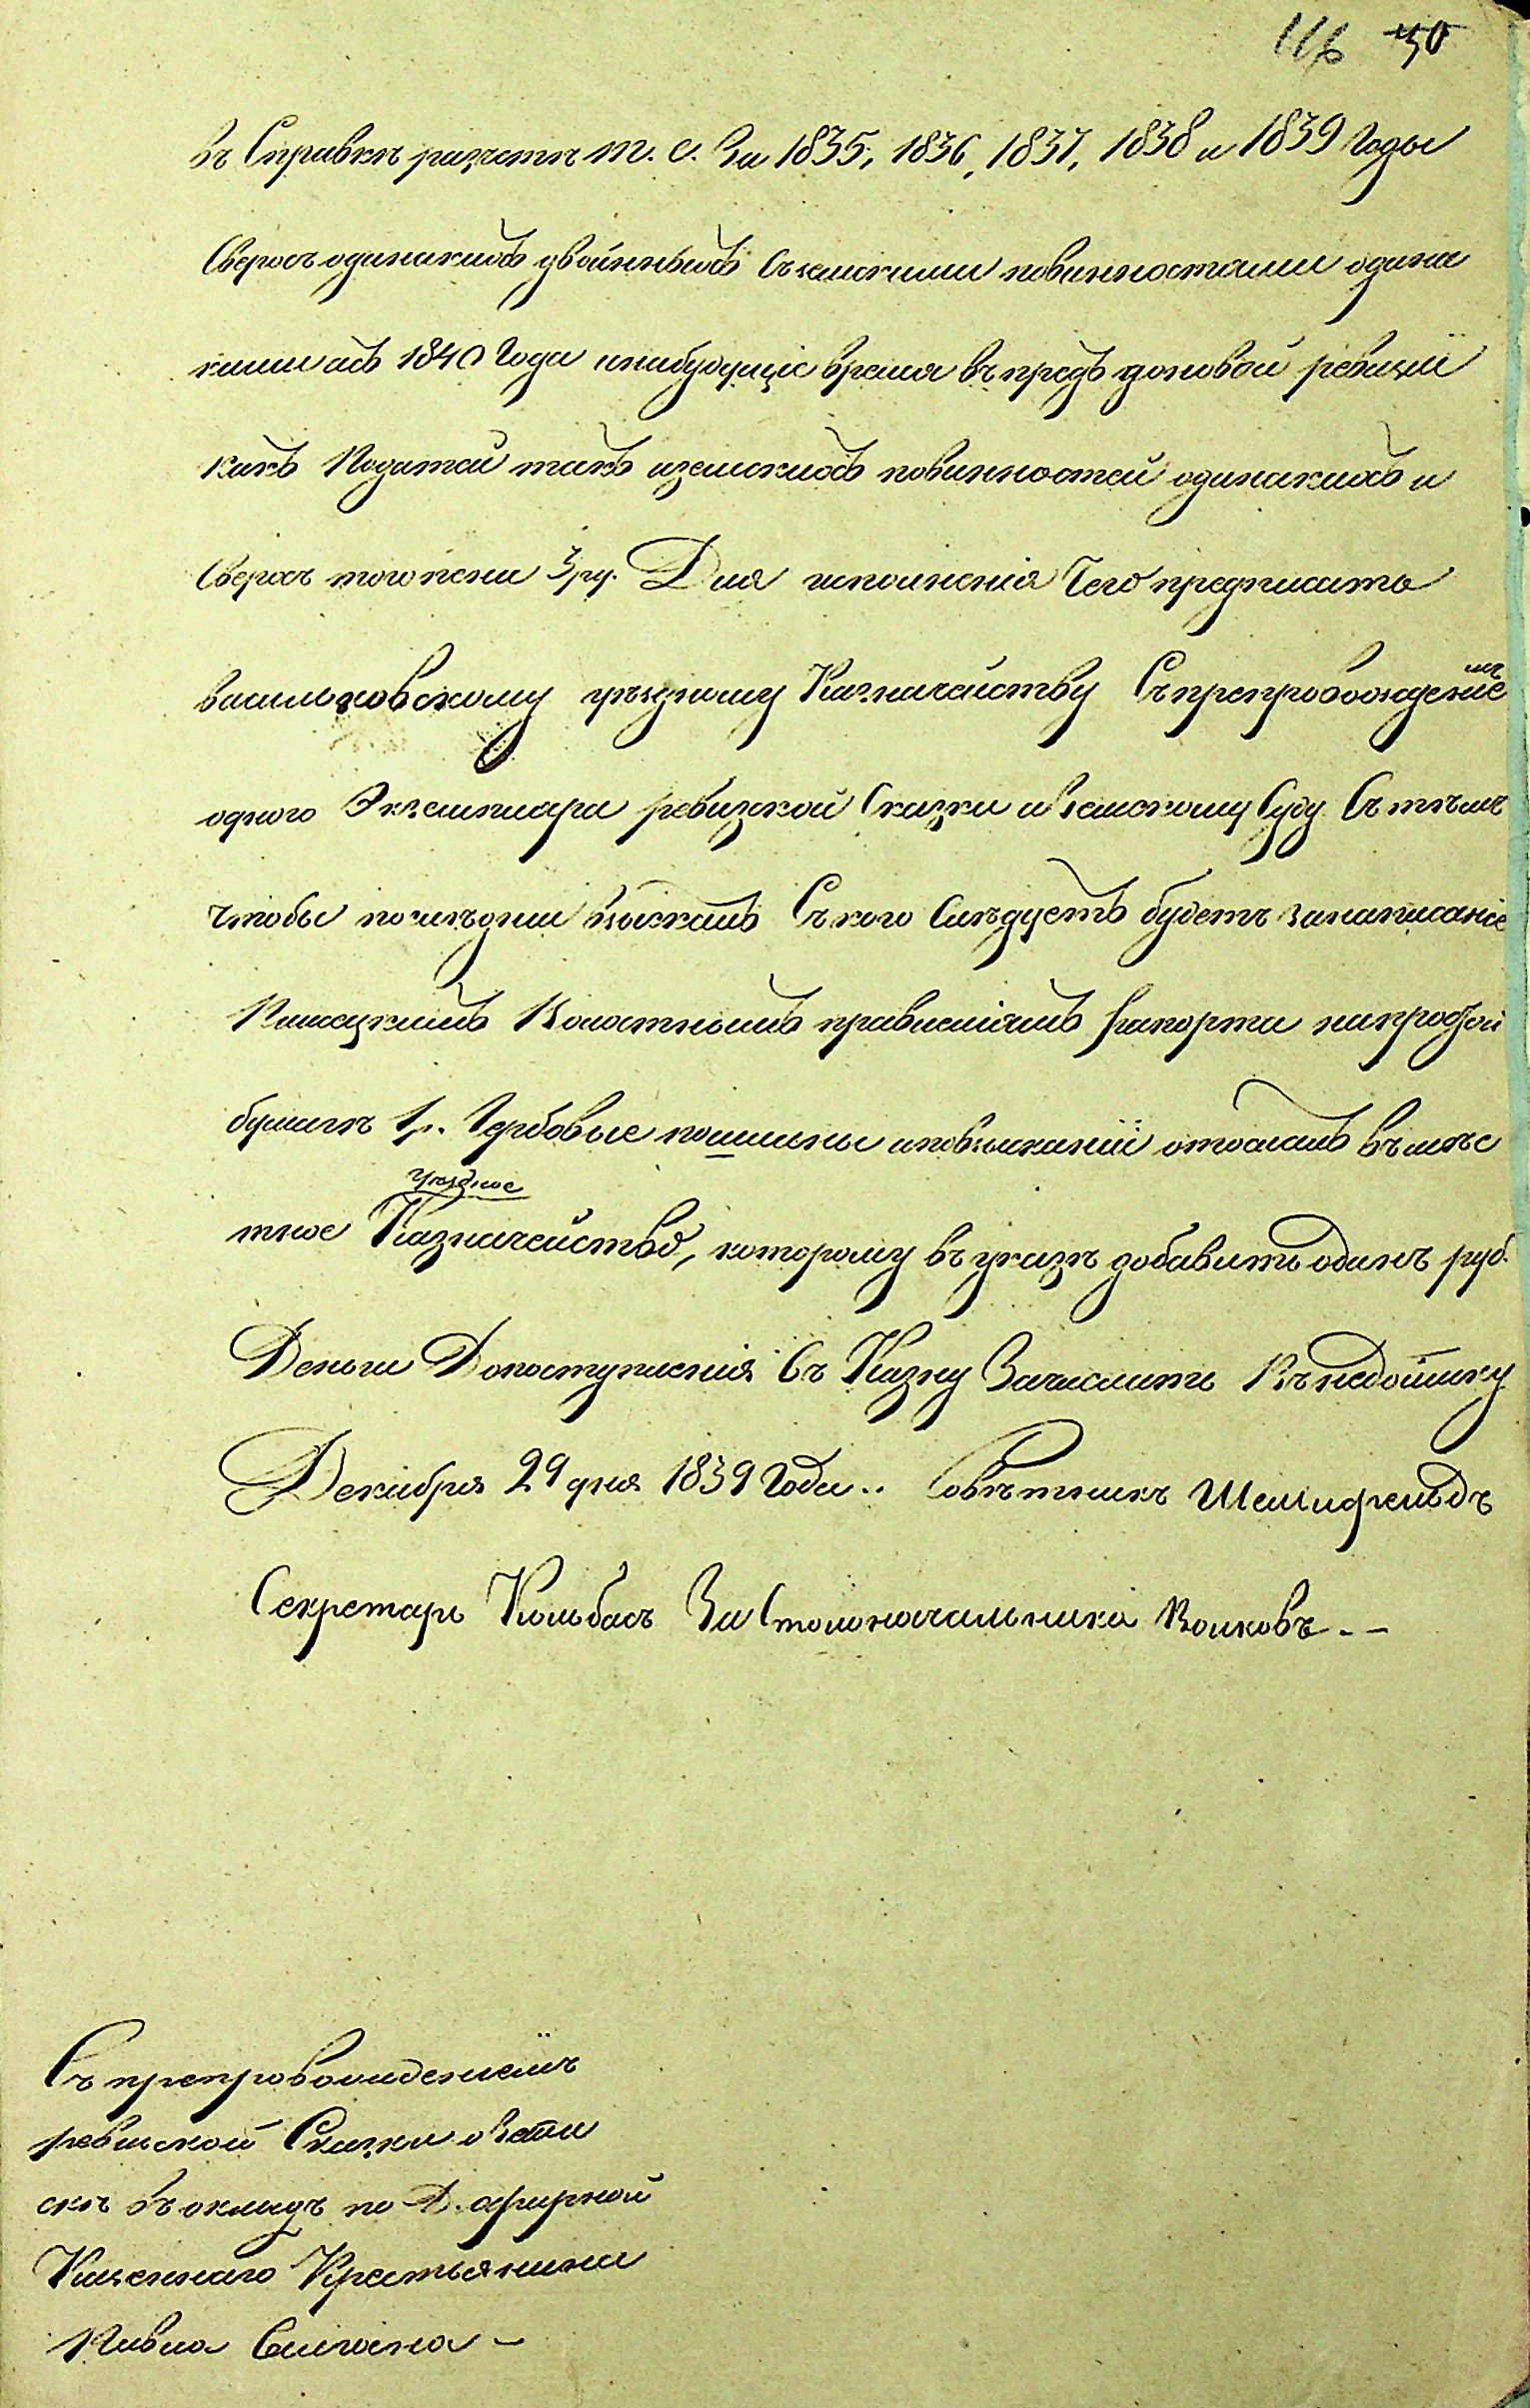 116 50
въ Справкѣ разчетѣ т. е. За 1835, 1836, 1837, 1838 и 1839 Годы
Сверхъ одинакихъ двойныхъ Съземскими повинностями одина
кими асъ 1840 Года инабудущіе время въпредь доновой ревизіи
какъ Податей такъ иземскихъ повинностей одинакихъ и
Сверхъ того пени 3 ру. Для исполненія Чего предписать
васильковскому уѣздному Казначейству Съпрепровождение
мъ
одного Экземпляра ревизской Сказки иЗемскому Суду Съ тѣмъ
чтобы послѣдній взыскалъ Съкого Слѣдуетъ будетъ занаписаніе
Волостнымъ правленіемъ рапорта напростой
бумагѣ 1 р. Гербовые пошлины иповзысканіи отослалъ въмѣс
уѣздное
тное Казначейство, которому въ указѣ добавить одинъ руб.
Деньги Допоступленія въ Казну Зачислить Кънедоимку
Декабря 29 дня 1839 Года.. Совѣтникъ
Секретарь Кольбасъ За Столоначальника Волковъ. —
Съпрепровожденіемъ
ревиской Сказки оЗапи
скѣ въ окладъ по
Казеннаго Крестьянина
Павла